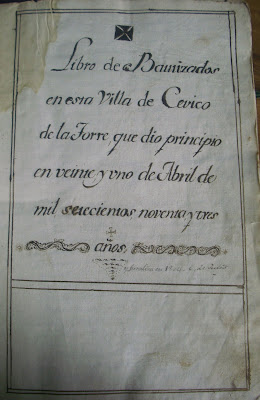 Libro de Bautizados
en esta Villa de Cevico
de la Torre que dio principio
en veinte y vno de Abril de
mil setecientos noventa y tres
años.